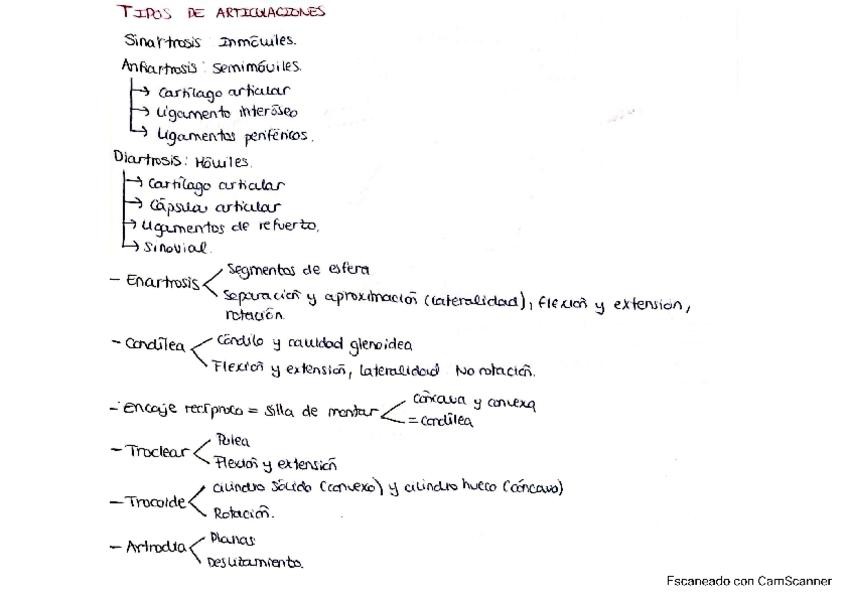 TIPOS DE ARTICULACIONES
Sinartrosis Inmóviles.
Anfiartrosis: Semimóviles.
→ Cartílago articular
→ Ligamento interóseo
→ Ligamentos periféricos.
Diartrosis: Móviles.
→ Cartílago articular
→ Cápsula articular
→ Ligamentos de refuerto.
→ Sinovial.
- Enartrosis
Segmentos de esfera
Separación y aproximación (lateralidad), flexión y extensión,
rotación.
- Condílea
Cóndilo y cavidad glenoidea
Flexión y extensión, lateralidad No rotación.
- Encaje recíproco = Silla de montar
Cóncava y convexa
= condílea
- Troclear
Polea
Flexión y extensión
- Trocoide
Cilindro sólido (convexo) y cilindro hueco (cóncavo)
Rotación.
- Artrodia
Planas
Deslizamiento.
Escaneado con CamScanner